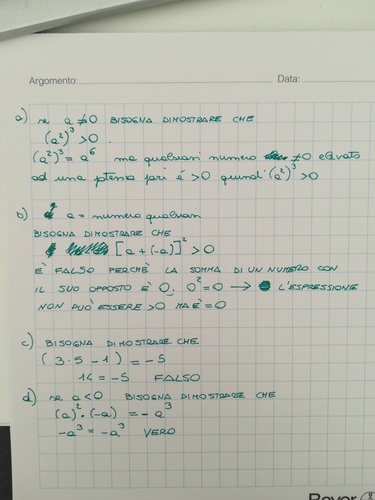 Argomento: Data:
a) se a ≠ 0 BISOGNA DIMOSTRARE CHE
(a²)³ > 0
(a²)³ = a⁶ ma qualsiasi numero ≠ 0 elevato
ad una potenza pari è > 0 quindi (a²)³ > 0
b) a = numero qualsiasi
BISOGNA DIMOSTRARE CHE
[a + (-a)]² > 0
È FALSO PERCHÈ LA SOMMA DI UN NUMERO CON
IL SUO OPPOSTO È 0, 0² = 0 → L'ESPRESSIONE
NON PUÒ ESSERE > 0 MA È = 0
c) BISOGNA DIMOSTRARE CHE
(3·5 - 1) = -5
14 = -5 FALSO
d) se a < 0 BISOGNA DIMOSTRARE CHE
(a)² · (-a) = -a³
-a³ = -a³ VERO